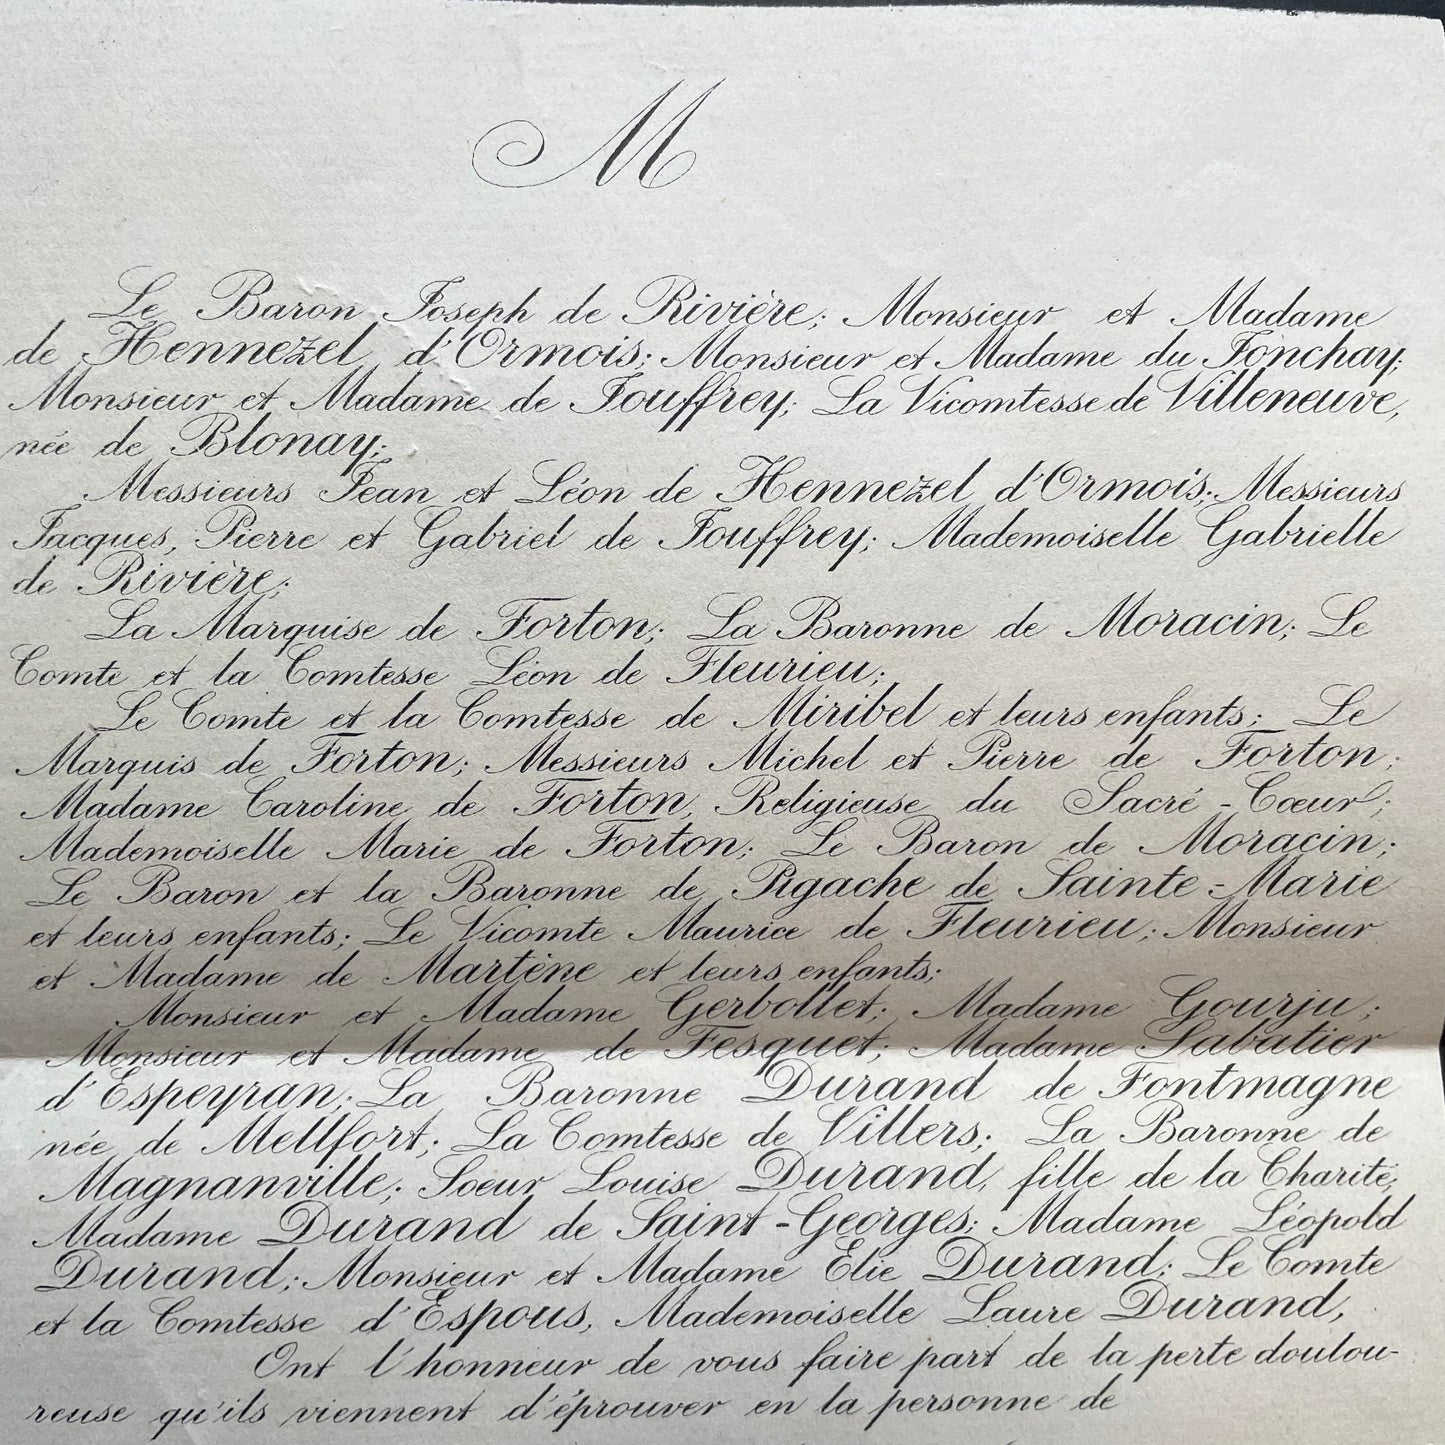 M
Le Baron Joseph de Rivière; Monsieur et Madame
de Hennezel d'Ormois; Monsieur et Madame du Fonchay;
Monsieur et Madame de Jouffrey; La Vicomtesse de Villeneuve,
née de Blonay;
Messieurs Jean et Léon de Hennezel d'Ormois; Messieurs
Jacques, Pierre et Gabriel de Jouffrey; Mademoiselle Gabrielle
de Rivière;
La Marquise de Forton; La Baronne de Moracin; Le
Comte et la Comtesse Léon de Fleurieu;
Le Comte et la Comtesse de Miribel et leurs enfants; Le
Marquis de Forton; Messieurs Michel et Pierre de Forton;
Madame Caroline de Forton, Religieuse du Sacré-Cœur;
Mademoiselle Marie de Forton; Le Baron de Moracin;
Le Baron et la Baronne de Pigache de Sainte-Marie
et leurs enfants; Le Vicomte Maurice de Fleurieu; Monsieur
et Madame de Martène et leurs enfants;
Monsieur et Madame Gerbollet; Madame Gourju;
Monsieur et Madame de Fesquet; Madame Sabatier
d'Espeyran; La Baronne Durand de Fontmagne
née de Mellfort; La Comtesse de Villers; La Baronne de
Magnanville; Soeur Louise Durand, fille de la Charité;
Madame Durand de Saint-Georges; Madame Léopold
Durand; Monsieur et Madame Elie Durand; Le Comte
et la Comtesse d'Espous, Mademoiselle Laure Durand,
Ont l'honneur de vous faire part de la perte doulou-
reuse qu'ils viennent d'éprouver en la personne de